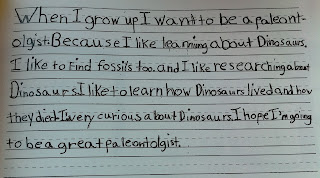 When I grow up I want to be a paleont-
olgist. Because I like learning about Dinosaurs.
I like to Find fossils too. and I like researching about
Dinosaurs I like to learn how Dinosaurs lived and how
they died. I very curious about Dinosaurs. I hope I'm going
to be a great paleontolgist.